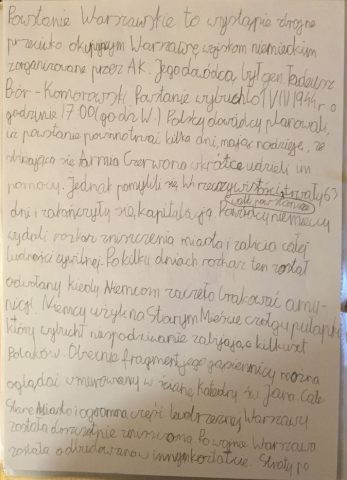 Powstanie Warszawskie to wystąpie zbrojne
przeciwko okupującym Warszawę wojskom niemieckim
zorganizowane przez AK. Jego dowódcą był gen Tadeusz
Bór-Komorowski Powstanie wybuchło 1 VIII 1944 r. o
godzinie 17:00 (godz W.) Polscy dowódcy planowali,
iż powstanie powinno trwać kilka dni, mając nadzieje, że
zbliżająca się Armia Czerwona wkrótce udzieli im
pomocy. Jednak pomylili się. W rzeczywistości trwały 63
dni i zakończyły się kapitulacją Dowódcy niemieccy
walki powstańcze
wydali rozkaz zniszczenia miasta i zabicia całej
ludności cywilnej. Po kilku dniach rozkaz ten został
odwołany kiedy Niemcom zaczęło brakować amu-
nicji. Niemcy użyli na Starym Mieście czołgu pułapki
który wybuchł niespodziewanie zabijając kilkuset
Polaków. Obecnie fragment jego gąsiennicy można
oglądać wmurowany w ścianę Katedry św. Jana. Całe
Stare Miasto i ogromna część lewobrzeżnej Warszawy
została doszczętnie zniszczona. Po wojnie Warszawa
została odbudowana w innym kształcie. Straty po